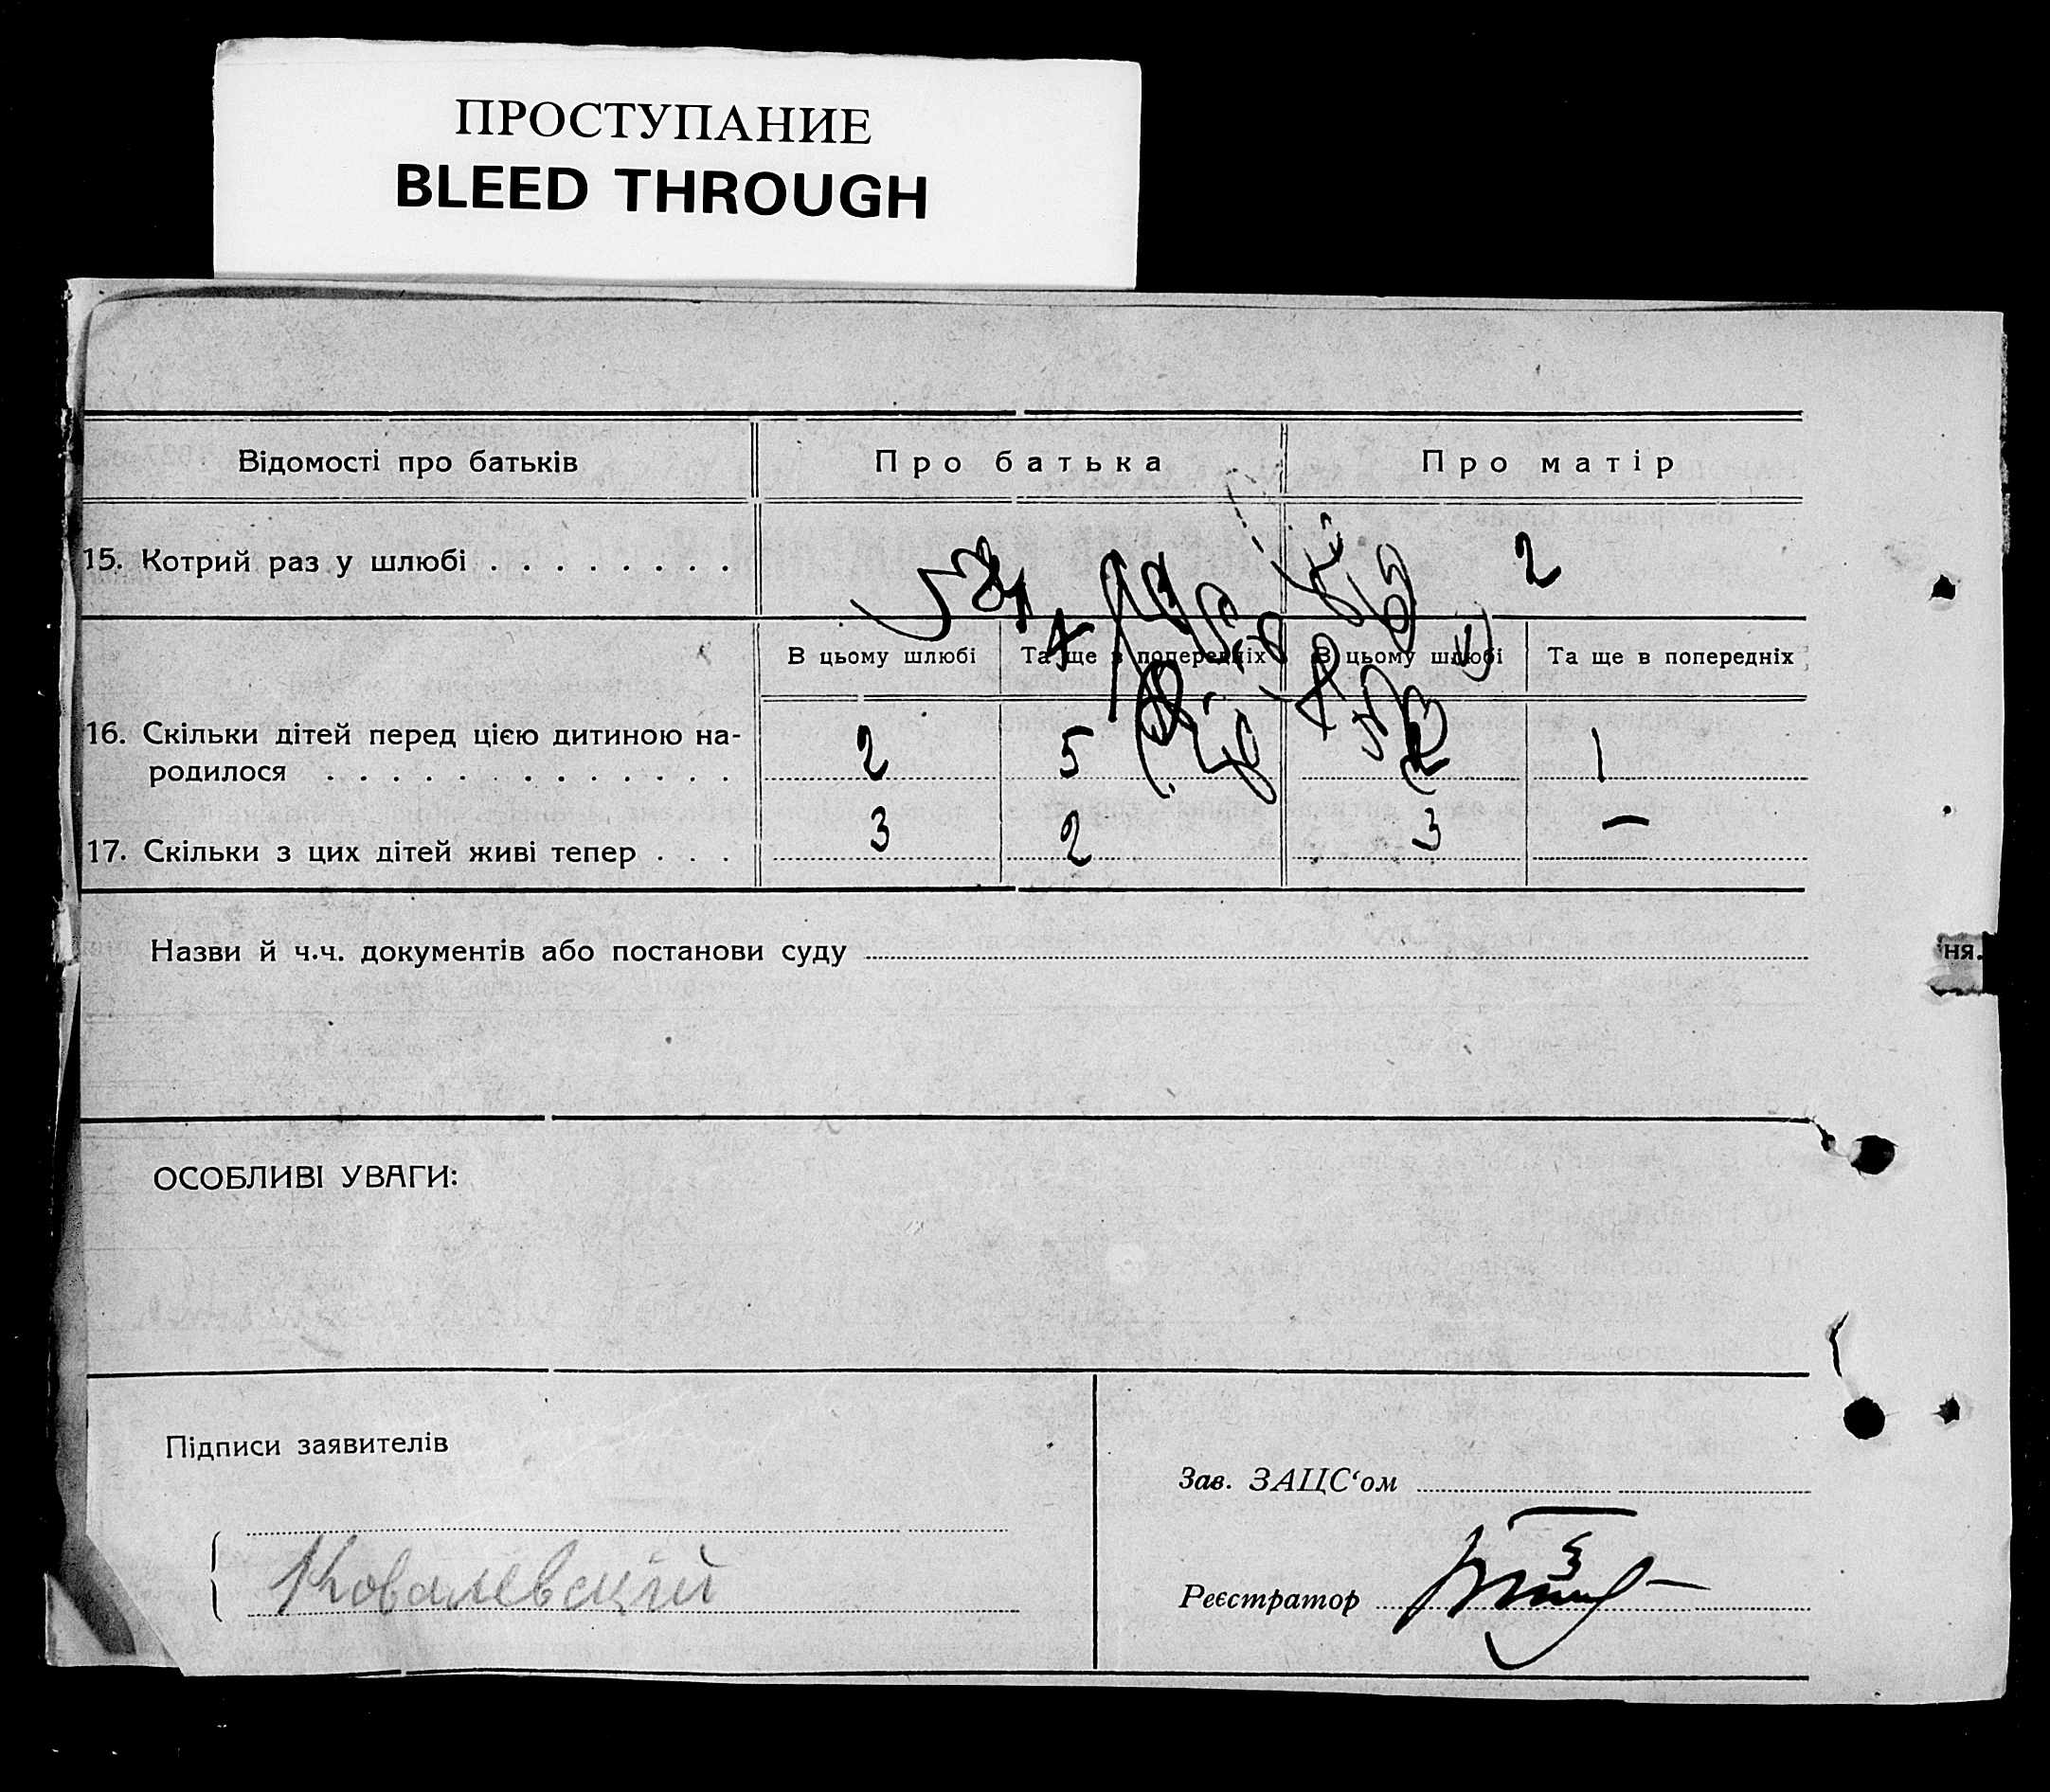 ПРОСТУПАНИЕ
BLEED THROUGH
Відомості про батьків Про батька Про матір
15. Котрий раз у шлюбі . . . . . . . . 2
В цьому шлюбі Та ще в попередніх В цьому шлюбі Та ще в попередніх
16. Скільки дітей перед цією дитиною на-
родилося . . . . . . . . . . . . . 2 5 2 1
17. Скільки з цих дітей живі тепер . . . 3 2 3 —
Назви й ч.ч. документів або постанови суду
ня.
ОСОБЛИВІ УВАГИ:
Підписи заявителів
Зав. ЗАЦС‘ом
Ковалевский
Реєстратор